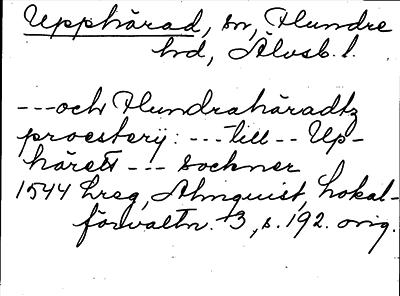 Upphärad, sn, Flundre
hd, Älvsb. l.
---och Flundrahäradtz
proesterij: --- till -- Up-
härett --- sockner
1544 hreg, Almquist, Lokal-
förvaltn. 3, s. 192. orig.